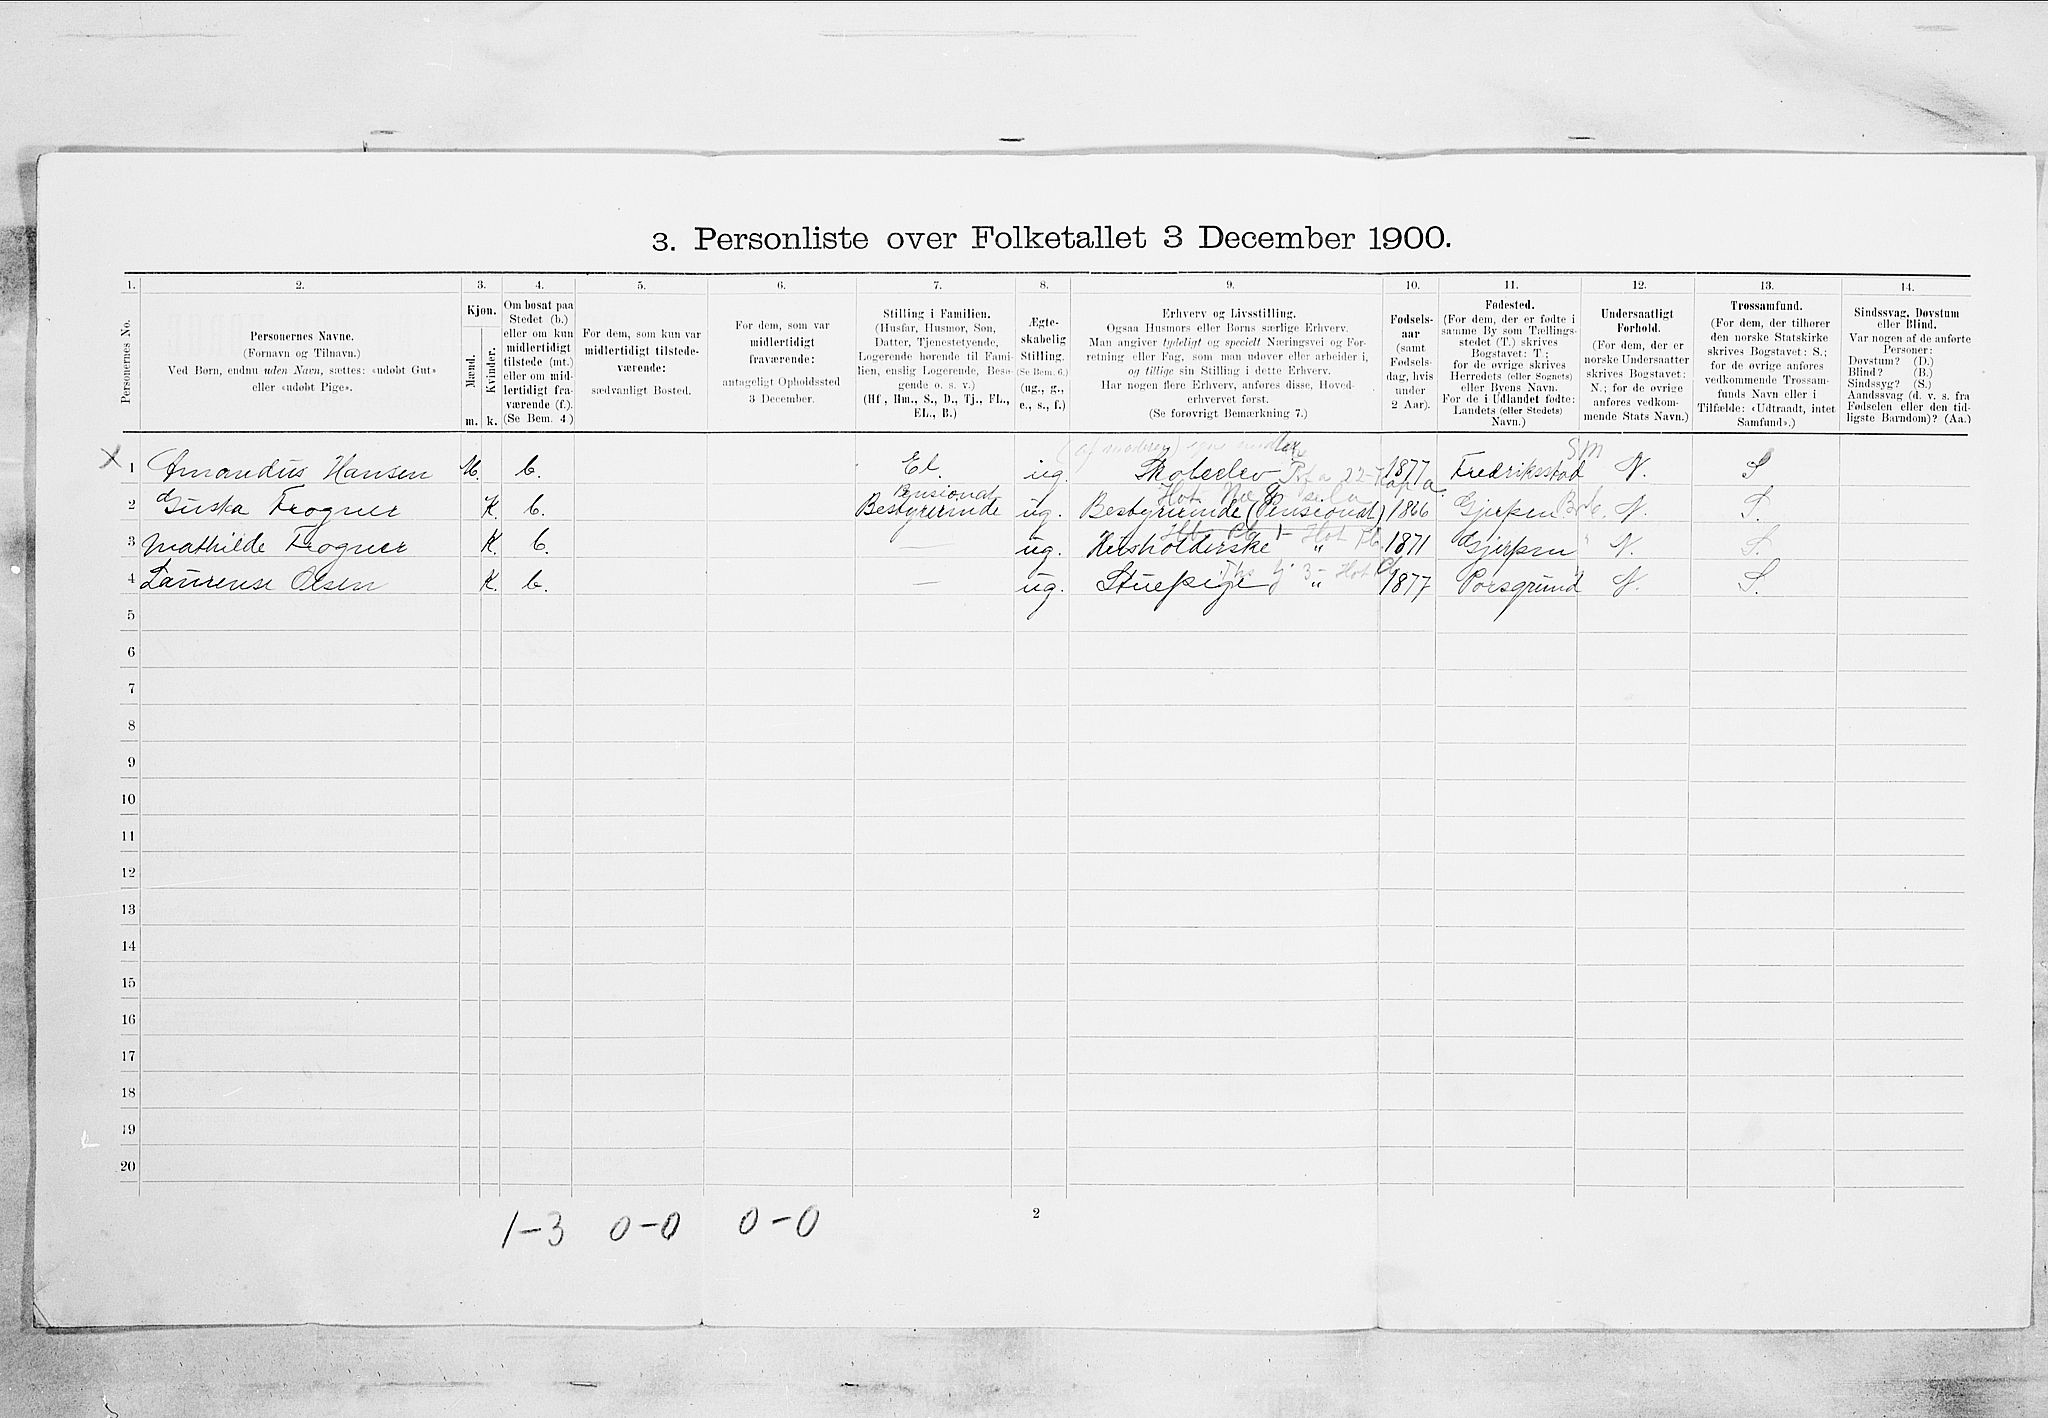 3. Personliste over Folketallet 3 December 1900.
1. 2. 3. 4. 5. 6. 7. 8. 9. 10. 11. 12. 13. 14.
Personernes No.
Personernes Navne.
(Fornavn og Tilnavn.)
Ved Børn, endnu uden Navn, sættes: «udøbt Gut»
eller «udøbt Pige».
Kjøn.
Mænd.
Kvinder.
m. k.
Om bosat paa
Stedet (b.)
eller om kun
midlertidigt
tilstede (mt.)
eller om mid-
lertidigt fra-
værende (f.).
(Se Bem. 4.)
For dem, som kun var
midlertidigt tilstede-
værende:
sædvanligt Bosted.
For dem, som var
midlertidigt
fraværende:
antageligt Opholdssted
3 December.
Stilling i Familien.
(Husfar, Husmor, Søn,
Datter, Tjenestetyende,
Logerende hørende til Fami-
lien, enslig Logerende, Besø-
gende o. s. v.)
(Hf., Hm., S., D., Tj., FL.,
EL., B.)
Ægte-
skabelig
Stilling.
(Se Bem. 6.)
(ug., g.,
e., s., f.)
Erhverv og Livsstilling.
Ogsaa Husmors eller Børns særlige Erhverv.
Man angiver tydeligt og specielt Næringsvei og For-
retning eller Fag, som man udøver eller arbeider i,
og tillige sin Stilling i dette Erhverv.
Har nogen flere Erhverv, anføres disse, Hoved-
erhvervet først.
(Se forøvrigt Bemærkning 7.)
Fødsels-
aar
(samt
Fødsels-
dag, hvis
under
2 Aar).
Fødested.
(For dem, der er fødte i
samme By som Tællings-
stedet (T.) skrives
Bogstavet: T;
for de øvrige skrives
Herredets (eller Sognets)
eller Byens Navn.
For de i Udlandet fødte:
Landets (eller Stedets)
Navn.)
Undersaatligt
Forhold.
(For dem, der er
norske Undersaatter
skrives Bogstavet:
N.; for de øvrige
anføres vedkom-
mende Stats Navn.)
Trossamfund.
(For dem, der tilhører
den norske Statskirke
skrives Bogstavet: S.;
for de øvrige anføres
vedkommende Trossam-
funds Navn eller i
Tilfælde: «Udtraadt, intet
Samfund».)
Sindssvag, Døvstum
eller Blind.
Var nogen af de anførte
Personer:
Døvstum? (D.)
Blind? (B.)
Sindssyg? (S.)
Aandssvag (d. v. s. fra
Fødselen eller den tid-
ligste Barndom)? (Aa.)
x 1 Amandus Hansen M. b. El. ug. 1877 Fredriksstad N. S
Pensionat
2 Guska Frogner K. b. Bestyrerinde ug. Bestyrerinde (Pensionat) 1866 Gjerpen N. S.
3 Mathilde Frogner K. b. — ug. Husholderske " 1871 Gjerpen N. S.
4 Laurense Olsen K. b. — ug. Stuepige " 1877 Porsgrund N. S.
5
6
7
8
9
10
11
12
13
14
15
16
17
18
19
20
1-3 0-0 0-0
2